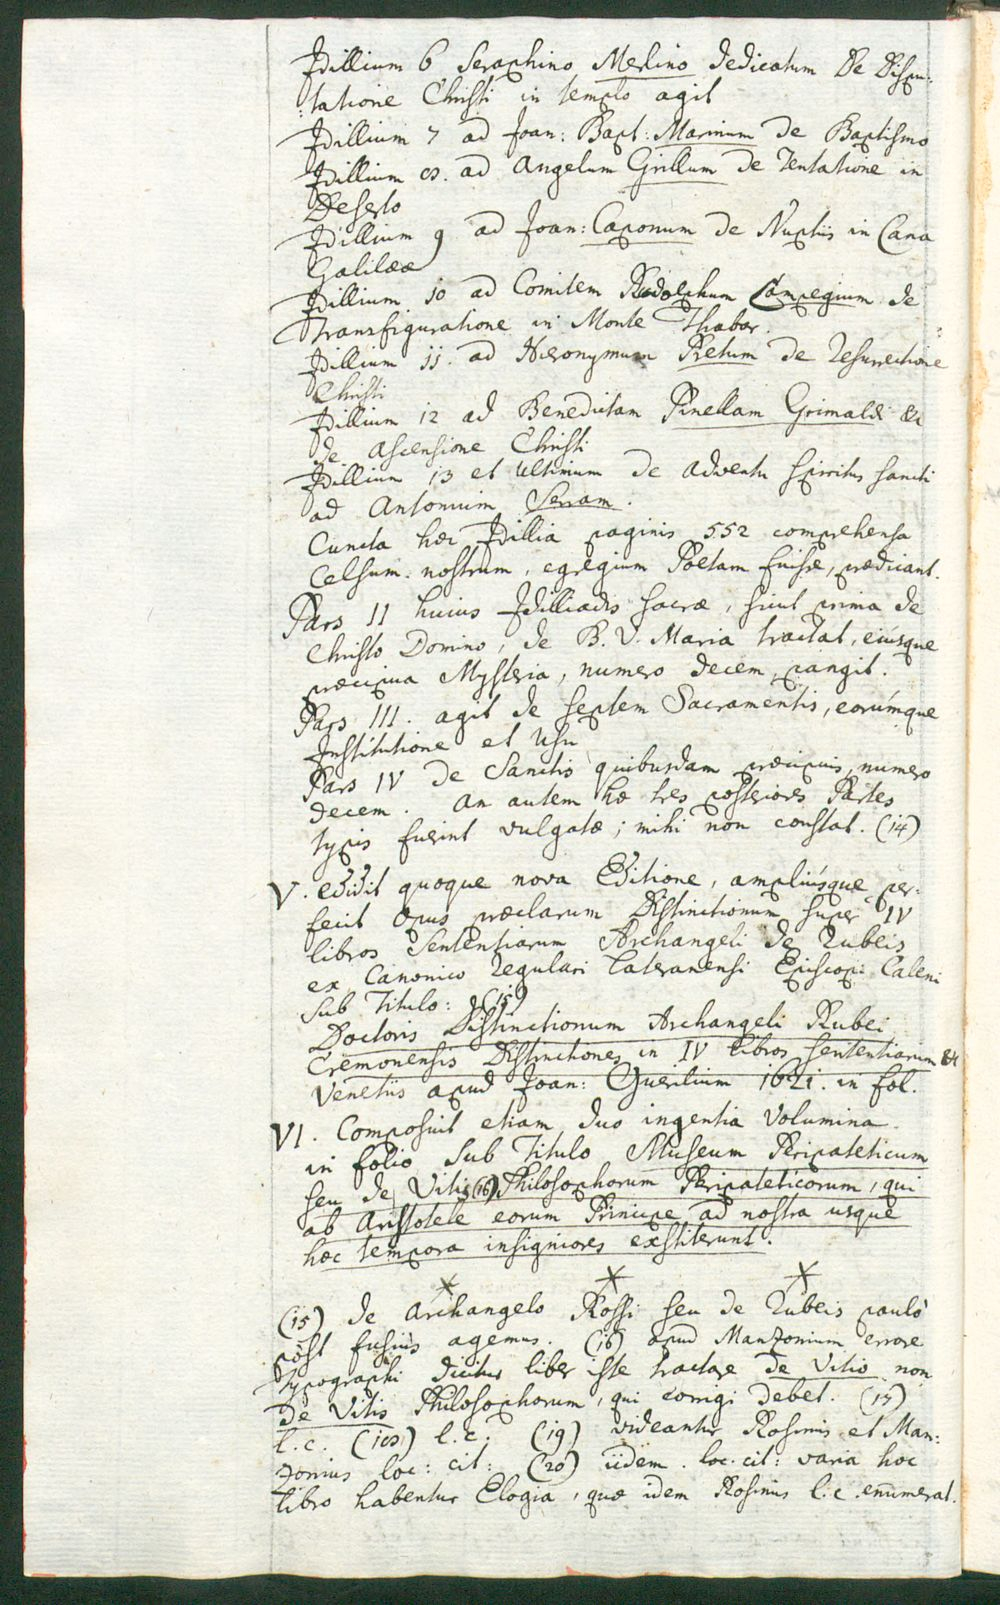 Idillium 6 Seraphino Merlino dedicatum De Dispu:
:tatione Christi in templo agit
Idillium 7 ad Joan: Bapt: Marinum de Baptismo
Idillium 8. ad Angelum Grillum de Tentatione in
Deserto
Idillium 9 ad Joan: Caponum de Nuptiis in Cana
Galilææ
Idillium 10 ad Comitem Rudolphum Campegium de
Transfiguratione in Monte Thabor.
Idillium 11. ad Hieronymum Pretum de Resurrectione
Christi
Idillium 12 ad Benedictam Pinellam Grimaldi &c
de Ascensione Christi
Idillium 13 et ultimum de adventu spiritus sancti
ad Antonium Serram.
Cuncta hæc Idillia paginis 552 comprehensa
Celsum nostrum, egregium Poetam fuisse, prædicant.
Pars II huius Idilliadis sacræ, sicut prima de
Christo Domino, de B. V. Maria tractat, eiúsque
præcipua Mysteria, numero decem pangit.
Pars III. agit de septem Sacramentis, eorúmque
Institutione et Usu
Pars IV de Sanctis quibusdam præcipuis, numero
decem. An autem hæ tres posteriores Partes
typis fuerint vulgatæ; mihi non constat. (14)
V. edidit quoque nova Editione, ampliúsque per:
fecit opus præclarum Distinctionum super IV
libros Sententiarum Archangeli de Rubeis
ex Canonico Regulari Lateranensi Episcopi Caleni
sub Titulo: (15)
Doctoris Distinctionum Archangeli Rubei
Cremonensis Distinctiones in IV libros sententiarum &c
Venetiis apud Joan: Guerilium 1621. in fol.
VI. Composuit etiam duo ingentia Volumina
in folio sub Titulo Museum Peripateticum
seu de Vitis (16) Philosophorum Peripateticorum, qui
ab Aristotele eorum Principe ad nostra usque
hæc tempora insigniores exstiterunt.
(15) de Archangelo Rossi seu de Rubeis paulò
pòst fusiùs agemus. (16) apud Manzonium errore
typographi dicitur liber iste tractare de Vitio non
de Vitis Philosophorum, qui corrigi debet. (17)
l. c. (18) l. c. (19) videantur Rosinis et Man:
zonius loc: cit: (20) iidem. loc. cit: varia hoc
libro habentur Elogia, quæ idem Rosinus l. c. enumerat.